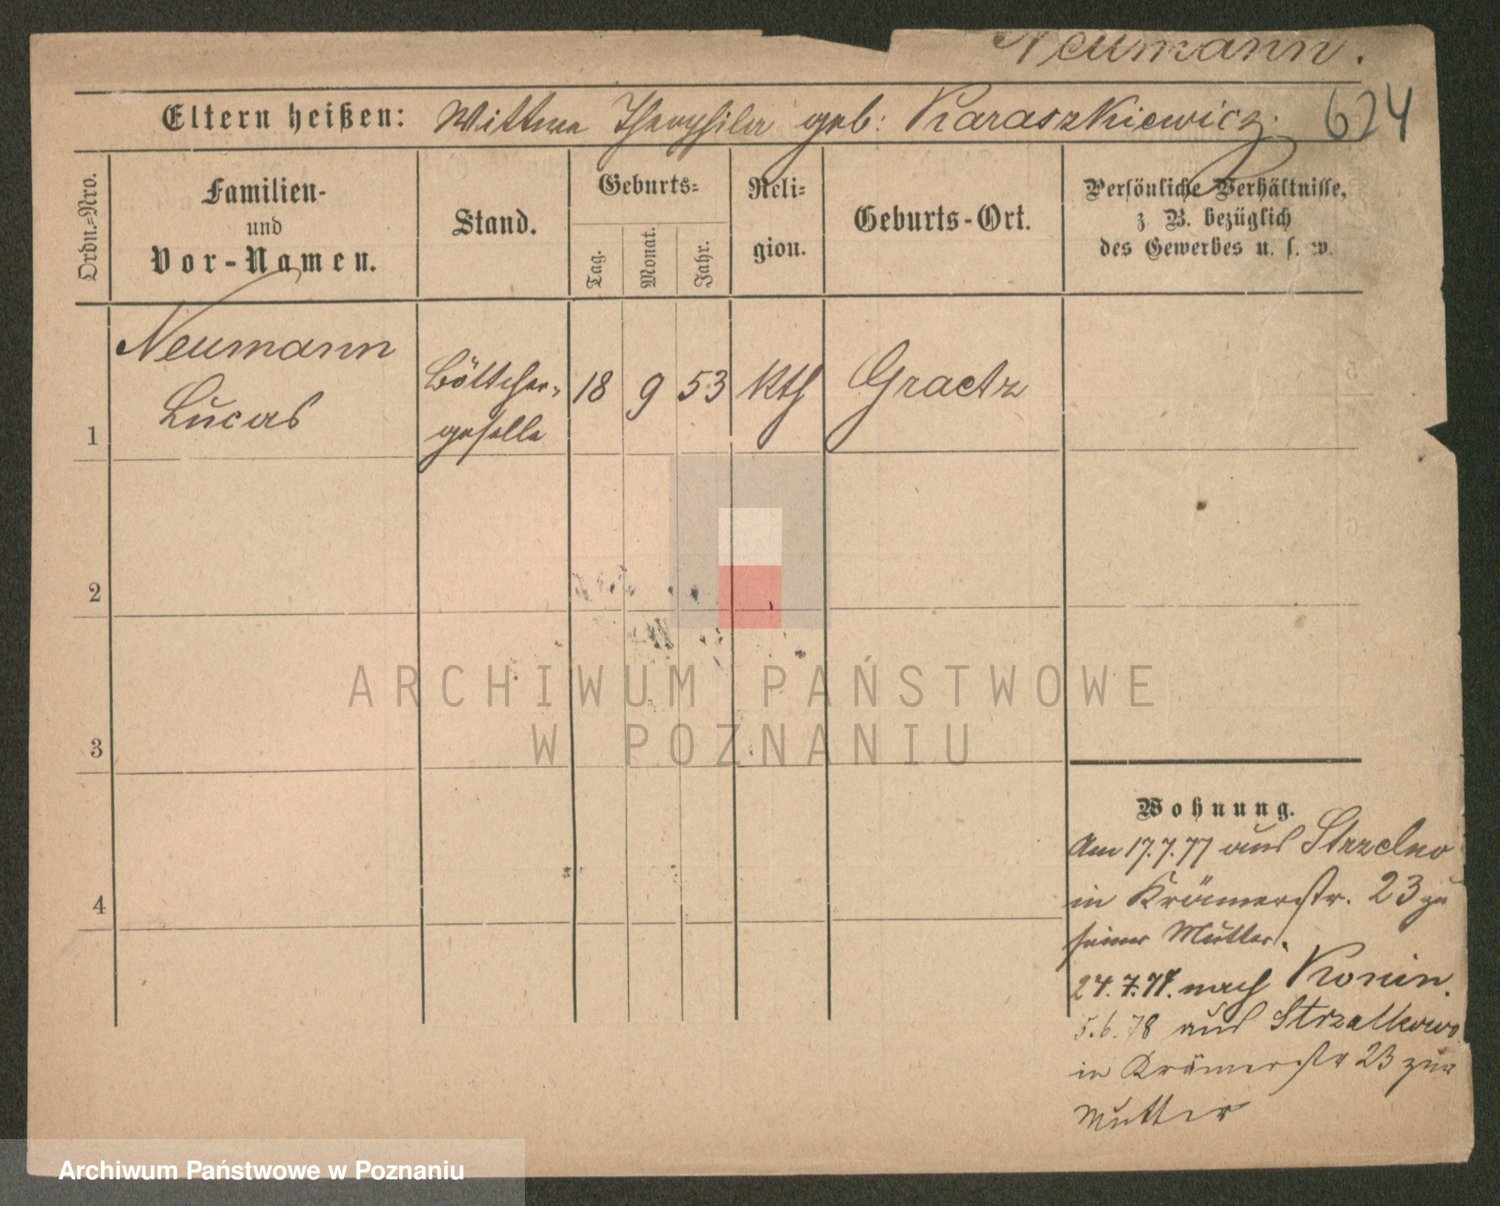 Neumann.
Eltern heißen: Wittwe Theophila geb: Karaszkiewicz. 624
Ordn.=Nro.
Familien-
und
Vor-Namen.
Stand.
Geburts=
Tag.
Monat.
Jahr.
Reli=
gion.
Geburts-Ort.
Persönliche Verhältnisse,
z. B. bezüglich
des Gewerbes u. s. w.
1
Neumann
Lucas
Böttcher-
geselle
18 9 53 kth Graetz
2
3
4
ARCHIWUM PAŃSTWOWE
W POZNANIU
Wohnung.
Am 17.7.77 aus Strzelno
in Krämerstr. 23 zu
seiner Mutter.
24.7.77. nach Konin.
5.6.78 aus Strzalkowo
in Krämerstr 23 zur
Mutter
Archiwum Państwowe w Poznaniu